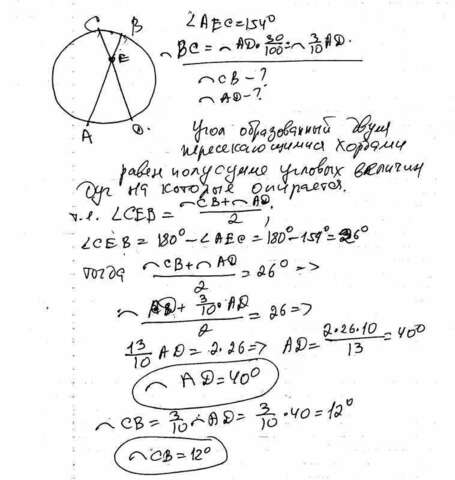 C B
E
A D.
∠AEC=154°
◡BC = ◡AD·30/100 = ◡3/10 AD.
◡CB-?
◡AD-?
Угол образованный двумя
пересекающимися хордами
равен полусумме угловых величин
дуг на которые опирается.
т.е. ∠CEB = (◡CB+◡AD)/2;
∠CEB = 180° - ∠AEC = 180° - 154° = 26°
тогда (◡CB+◡AD)/2 = 26° =>
◡(AD + 3/10·AD)/2 = 26 =>
13/10 AD = 2·26 => AD = (2·26·10)/13 = 40°
◡AD = 40°
◡CB = 3/10 ◡AD = 3/10 · 40 = 12°
◡CB = 12°